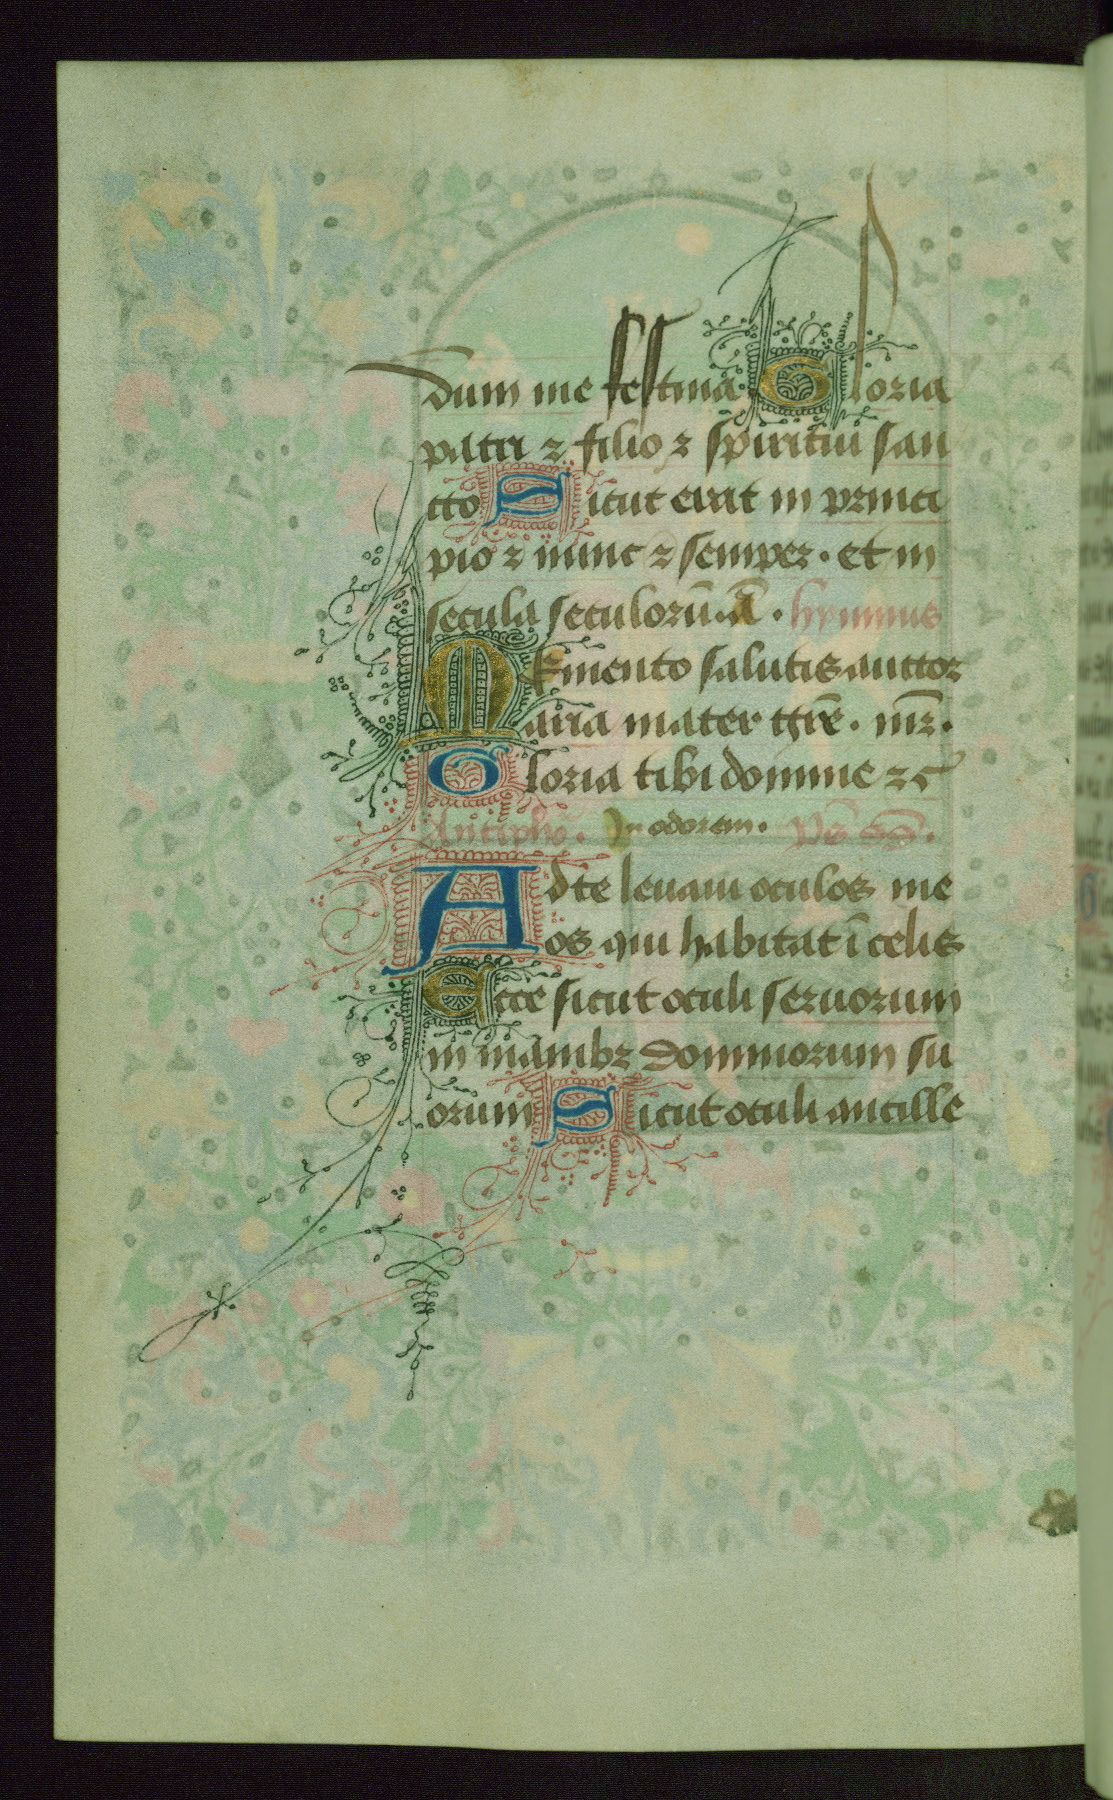 dum me festina. Gloria
patri ⁊ filio ⁊ spiritui san
cto Sicut erat in princi
pio ⁊ nunc ⁊ semper. et in
secula seculorū. A. hymnus
Memento salutis auctor
Maria mater grē. mr̄.
Gloria tibi domine ⁊c
Antiphō. In odorem. ps̄
Ad te levavi oculos me
os qui habitat ī celis
Ecce sicut oculi servorum
in manibz dominorum su
orum Sicut oculi ancille